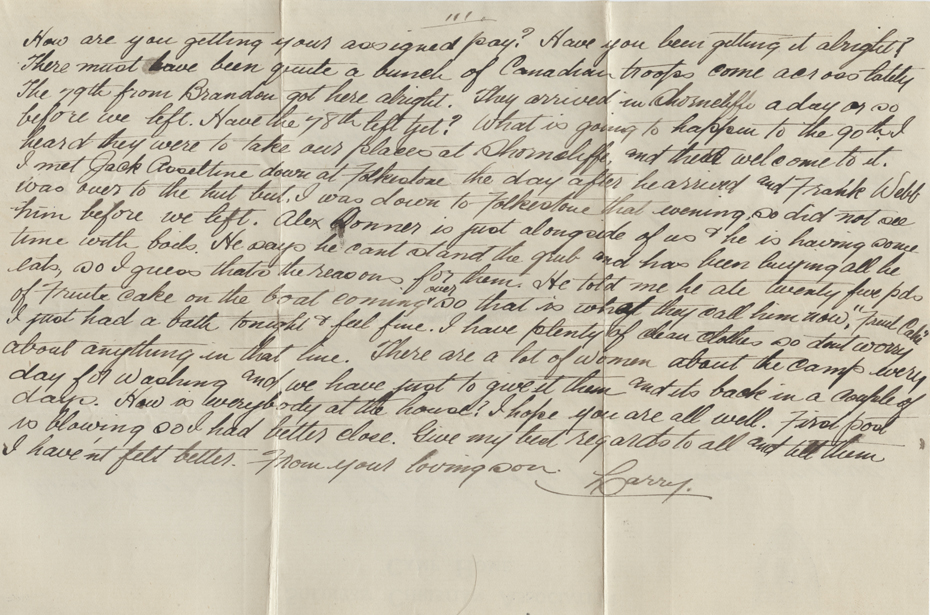 "'.
How are you getting your assigned pay? Have you been getting it alright?
There must have been quite a bunch of Canadian troops come across lately
The 79th from Brandon got here alright. They arrived in Shorncliffe a day or so
before we left. Have the 78th left yet? What is going to happen to the 90th. I
heard they were to take our places at Shorncliffe, and their welcome to it.
I met Jack down at Folkestone the day after he arrived and Frank Webb
was over to the hut but, I was down to Folkestone that evening, so did not see
him before we left. Alex is just alongside of us & he is having some
time with boils. He says he cant stand the grub and has been buying all he
eats, so I guess thats the reasons for them. He told me he ate twenty five pds
of Fruite cake on the boat coming over & so that is what they call him now, "Fruit Cake"
I just had a bath tonight & feel fine. I have plenty of clean clothes so dont worry
about anything in that line. There are a lot of women about the camp every
day for washing and we have just to give it them and its back in a couple of
days. How is everybody at the house? I hope you are all well. First post
is blowing so I had better close. Give my best regards to all and tell them
I haven't felt better. From your loving son
Harry.